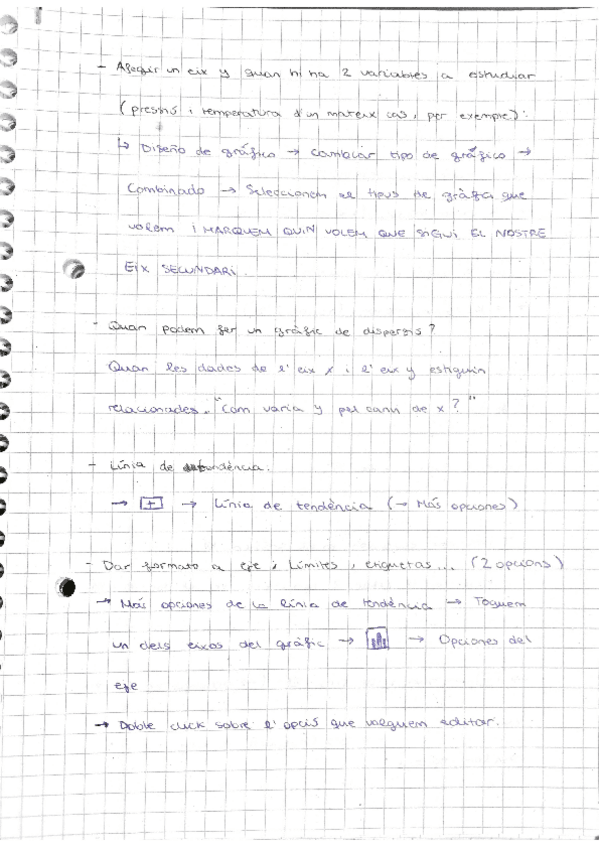 - Afegir un eix y quan hi ha 2 variables a estudiar
(pressió i temperatura d'un mateix cas, per exemple):
↳ Diseño de gráfico → Cambiar tipo de gráfico →
Combinado → Seleccionem el tipus de gràfica que
volem i MARQUEM QUIN VOLEM QUE SIGUI EL NOSTRE
EIX SECUNDARI.
- Quan podem fer un gràfic de dispersió?
Quan les dades de l'eix x i l'eix y estiguin
relacionades. "Com varia y pel canvi de x?"
- Línia de tendència.
→ + → Línia de tendència (→ Más opciones)
- Dar formato a eje; Límites, etiquetas... (2 opcions)
→ Más opciones de la línia de tendència → Toquem
un dels eixos del gràfic → → Opciones del
eje
→ Doble click sobre l'opció que volguem editar.